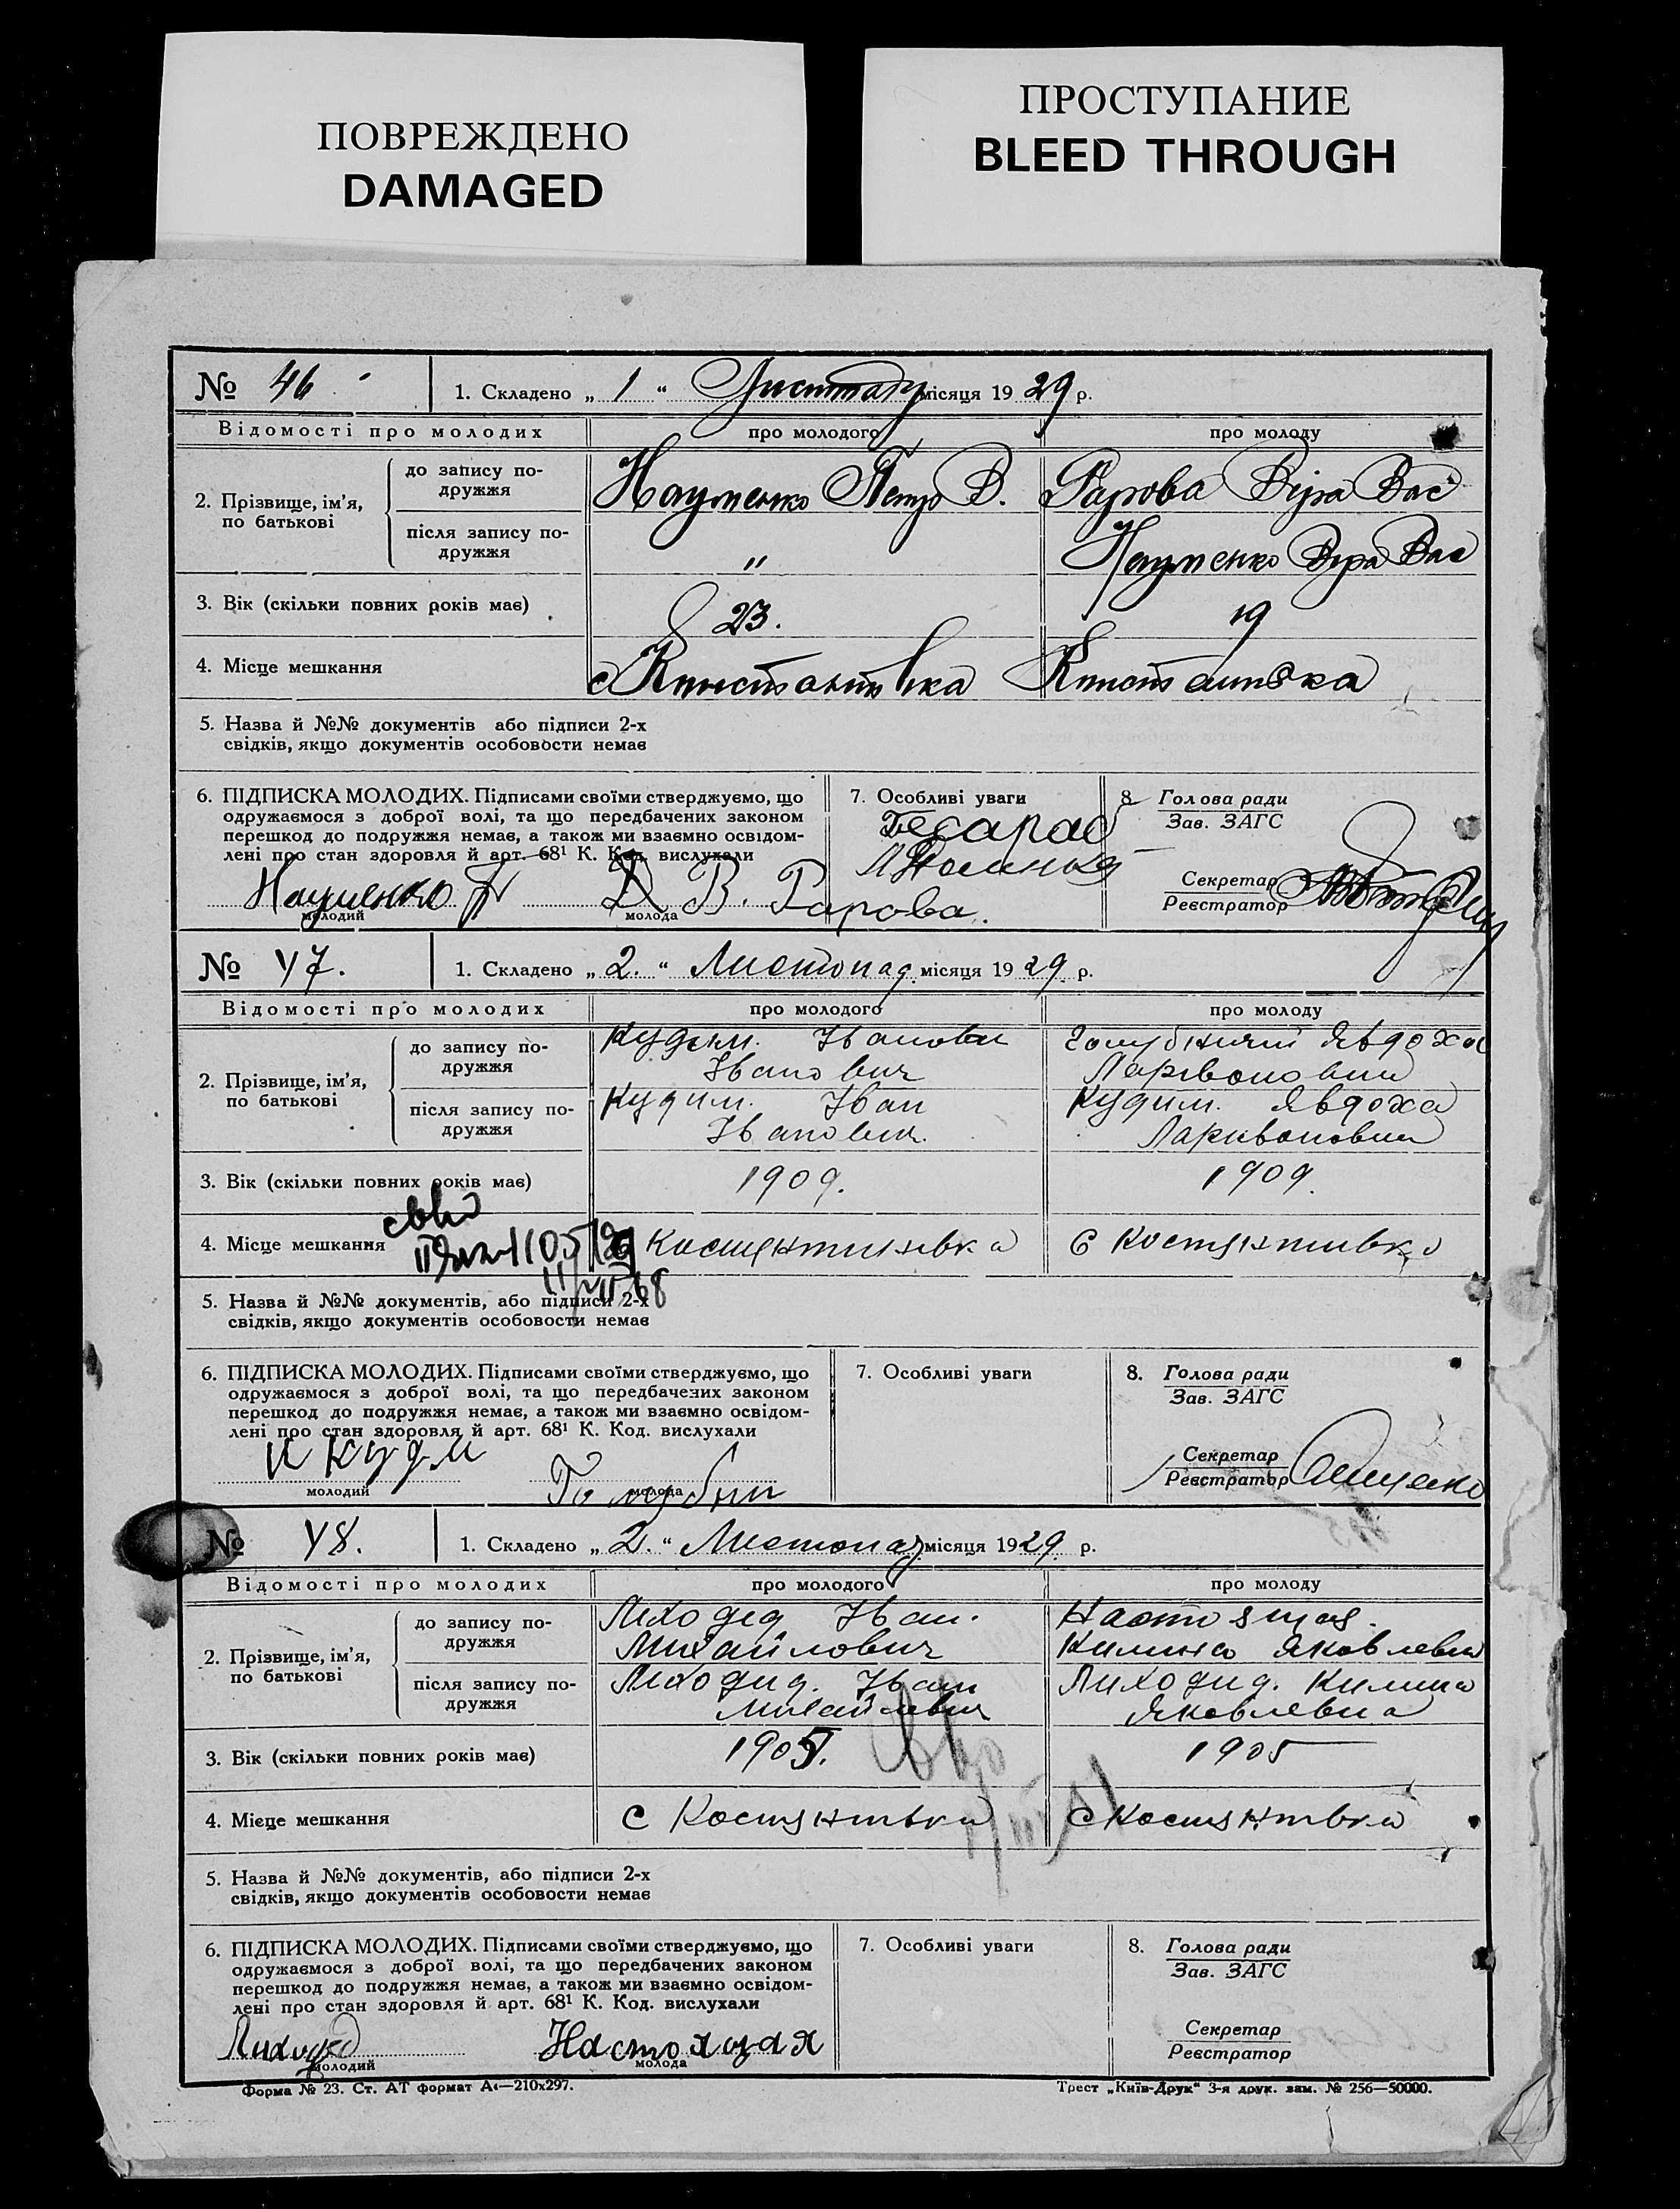 ПОВРЕЖДЕНО
DAMAGED
ПРОСТУПАНИЕ
BLEED THROUGH
№ 46 1. Складено „ 1 “ місяця 1929 р.
Відомості про молодих про молодого про молоду
2. Прізвище, ім’я, по батькові
до запису по-
дружжя
Науменко Петро В. Рарова Віра Вас
після запису по-
дружжя
" Науменко Віра Вас
3. Вік (скільки повних років має) 23. 19
4. Місце мешкання с
5. Назва й №№ документів або підписи 2-х
свідків, якщо документів особовости немає
6. ПІДПИСКА МОЛОДИХ. Підписами своїми стверджуємо, що
одружаємося з доброї волі, та що передбачених законом
перешкод до подружжя немає, а також ми взаємно освідом-
лені про стан здоровля й арт. 68¹ К. Код. вислухали
Науменко
молодий
В. Рарова.
молода
7. Особливі уваги
8. Голова ради
Зав. ЗАГС
Секретар
Реєстратор
№ 47. 1. Складено „ 2. “ Листопад. місяця 1929 р.
Відомості про молодих про молодого про молоду
2. Прізвище, ім’я, по батькові
до запису по-
дружжя
Кудим.
Іванович
Явдоха
після запису по-
дружжя
Кудим. Іван
Іванович.
Кудим. Явдоха
3. Вік (скільки повних років має) 1909. 1909.
4. Місце мешкання с
5. Назва й №№ документів, або підписи 2-х
свідків, якщо документів особовости немає
6. ПІДПИСКА МОЛОДИХ. Підписами своїми стверджуємо, що
одружаємося з доброї волі, та що передбачених законом
перешкод до подружжя немає, а також ми взаємно освідом-
лені про стан здоровля й арт. 68¹ К. Код. вислухали
молодий
молода
7. Особливі уваги
8. Голова ради
Зав. ЗАГС
Секретар
Реєстратор
№ 48. 1. Складено „ 2. “ Листопад місяця 1929 р.
Відомості про молодих про молодого про молоду
2. Прізвище, ім’я, по батькові
до запису по-
дружжя
Лиходід Іван.
Михайлович
Настоящая.
Килина Яковлевна
після запису по-
дружжя
Лиходид. Іван
Лиходид. Килина
Яковлевна
3. Вік (скільки повних років має) 1905. 1905
4. Місце мешкання с с
5. Назва й №№ документів, або підписи 2-х
свідків, якщо документів особовости немає
6. ПІДПИСКА МОЛОДИХ. Підписами своїми стверджуємо, що
одружаємося з доброї волі, та що передбачених законом
перешкод до подружжя немає, а також ми взаємно освідом-
лені про стан здоровля й арт. 68¹ К. Код. вислухали
молодий
Настоящая
молода
7. Особливі уваги
8. Голова ради
Зав. ЗАГС
Секретар
Реєстратор
Форма № 23. Ст. АТ формат А₄—210х297.
Трест „Київ-Друк“ 3-я друк. зам. № 256—50000.